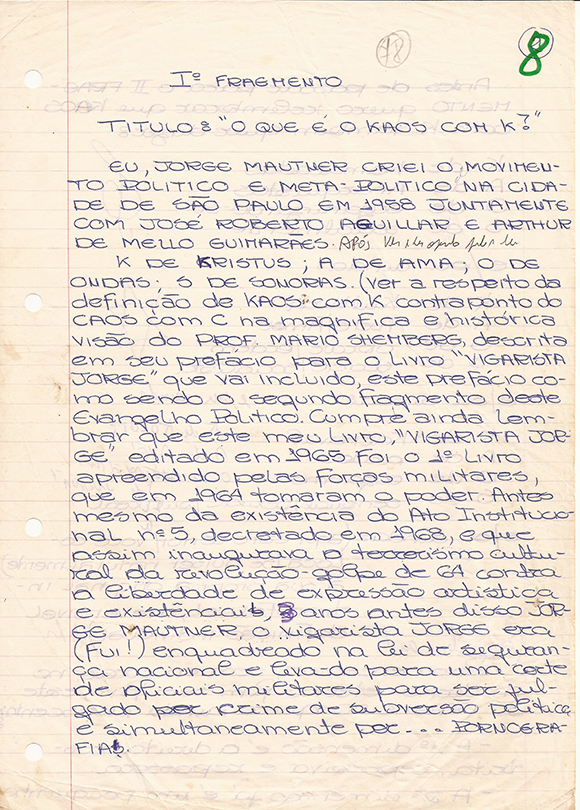 78
8
Iº FRAGMENTO
TITULO: "O QUE É O KAOS COM K?"
EU, JORGE MAUTNER CRIEI O MOVIMEN-
TO POLITICO E META-POLITICO NA CIDA-
DE DE SÃO PAULO EM 1958 JUNTAMENTE
COM JOSÉ ROBERTO AGUILLAR E ARTHUR
DE MELLO GUIMARÃES. APÓS
K DE KRISTUS; A DE AMA; O DE
ONDAS; S DE SONORAS. (Ver a respeito da
definição de KAOS com K contraponto do
CAOS com C na magnifica e histórica
visão do PROF. MARIO SHEMBERG, descrita
em seu prefácio para o LIVRO "VIGARISTA
JORGE" que vai incluido, este prefácio co-
mo sendo o segundo fragmento deste
Evangelho Politico. Cumpre ainda lem-
brar que este meu LIVRO, "VIGARISTA JOR-
GE" editado em 1965 foi o 1º Livro
apreendido pelas forças militares,
que em 1964 tomaram o poder. Antes
mesmo da existência do Ato Institucio-
nal nº 5, decretado em 1968, e que
assim inaugurava o terrorismo cultu-
ral da revolução golpe de 64 contra
a liberdade de expressão artística
e existêncial, 3 anos antes disso JOR-
GE MAUTNER, o vigarista JORGE era
(Fui!) enquadrado na lei de seguran-
ça nacional e levado para uma corte
de oficiais militares para ser jul-
gado por crime de subversão politica
e simultaneamente por... PORNOGRA-
FIA.